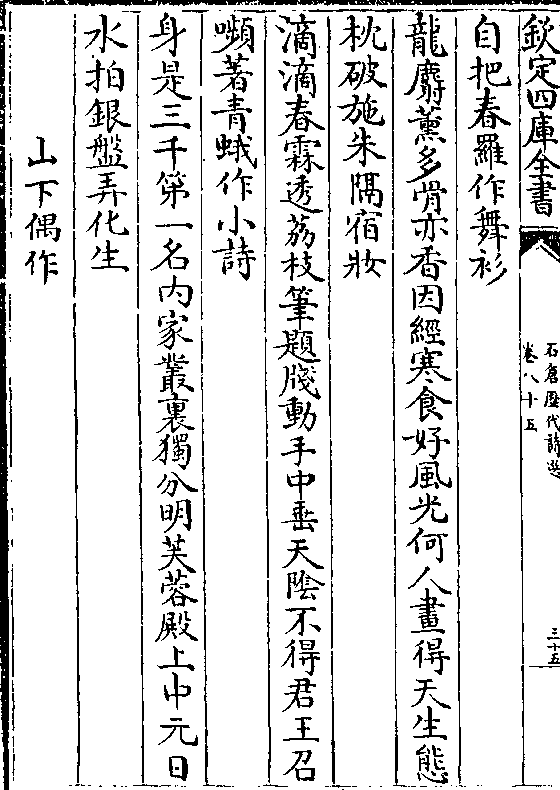 欽定四庫全書
石倉歷代詩選
卷八十五
三十五
自把春羅作舞衫
龍麝薰多骨亦香因經寒食好風光何人畫得天生態
枕破施朱隔宿妝
滴滴春霖透荔枝筆題牋動手中垂天陰不得君王召
嚬著青蛾作小詩
身是三千第一名内家叢裏獨分明芙蓉殿上中元日
水拍銀盤弄化生
山下偶作